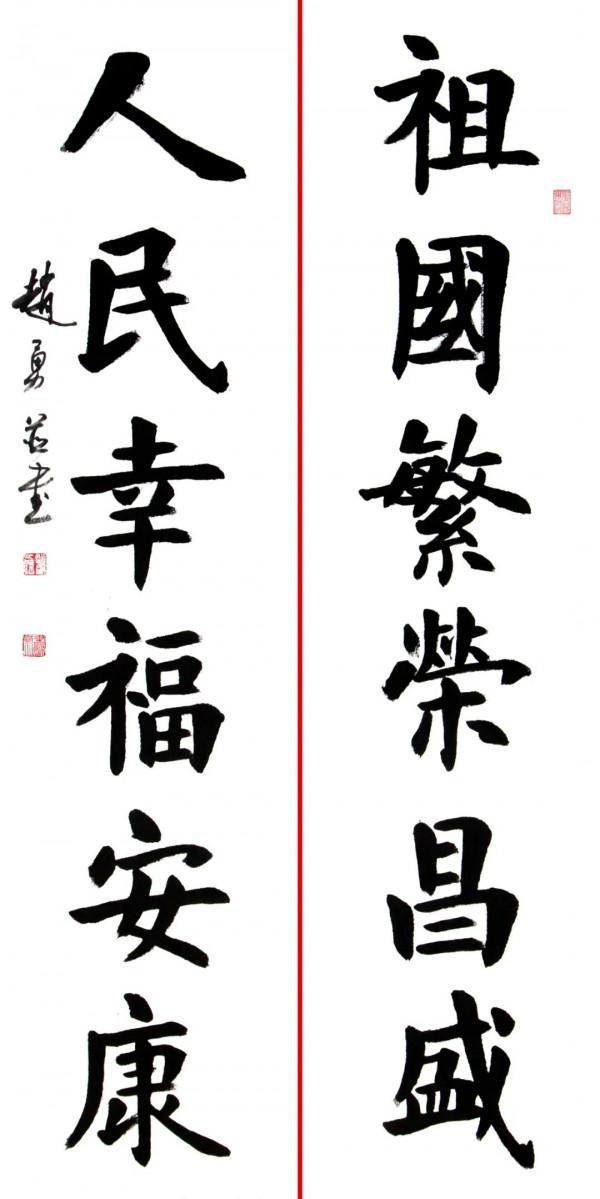 祖國繁榮昌盛
人民幸福安康
趙勇並書